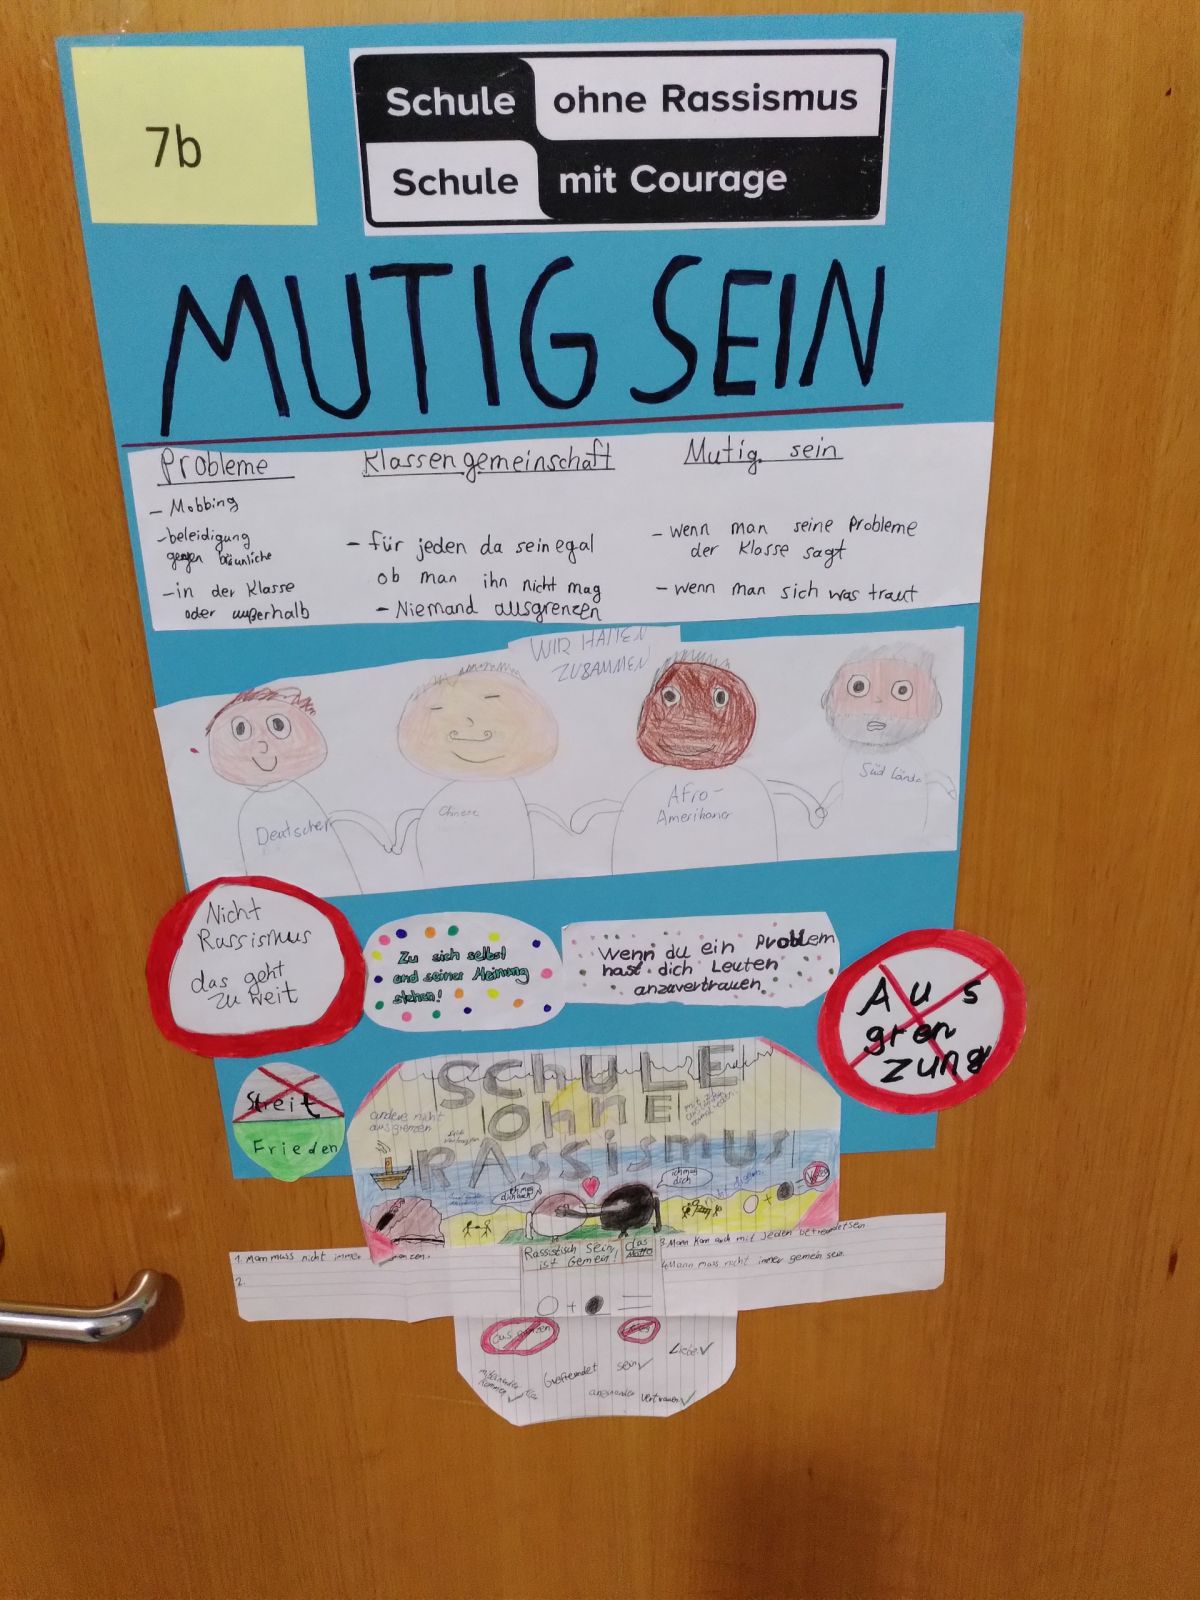 7b
Schule ohne Rassismus
Schule mit Courage
MUTIG SEIN
Probleme
- Mobbing
- beleidigung
gegen
- in der Klasse
oder außerhalb
Klassengemeinschaft
- für jeden da sein egal
ob man ihn nicht mag
- Niemand ausgrenzen
Mutig sein
- wenn man seine Probleme
der Klasse sagt
- wenn man sich was traut
WIR HALTEN
ZUSAMMEN
Deutscher
Afro-
Amerikaner
Süd
Nicht
Rassismus
das geht
zu weit
Zu sich selbst
und seiner Meinung
stehen!
Wenn du ein Problem
hast dich Leuten
anzuvertrauen
Aus
gren
zung
Streit
Frieden
SCHULE
OHNE
RAssismus
andere nicht
ausgrenzen
ich mag
dich auch
ich mag
dich
1. Man muss nicht immer
2.
Rassistisch sein
ist Gemein!
das
Motto
3. Mann kann auch mit jeden befreundet sein
4. Mann muss nicht immer gemein sein.
+ =
ausgrenzen
Liebe ✓
sein ✓
vertrauen ✓